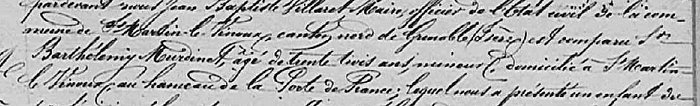 pardevant nous Jean Baptiste Villaret Maire, officier de l'Etat civil de la com-
mune de St Martin-le-Vinoux, canton nord de Grenoble (Isère) est comparu Sr
Barthélemy Murdinet, âgé de trente trois ans mineur, domicilié à St Martin-
le-Vinoux, au hameau de la Porte de France; lequel nous a présenté un enfant du